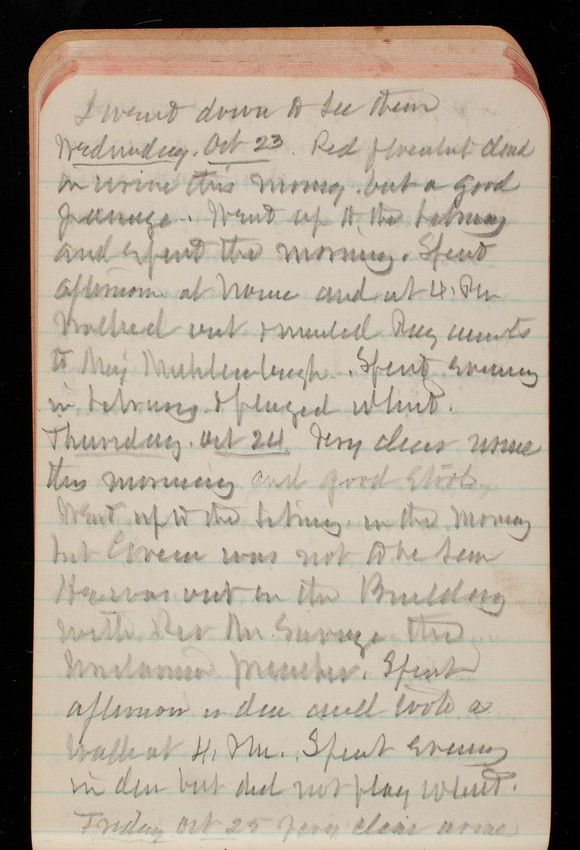 I went down to see them
Wednesday. Oct 23. Red flocculent cloud
in urine this morng. but a good
passage. Went up to the Library
and spent the morning. Spent
afternoon at home and at 4. PM
Walked out & mailed Pay accounts
to Maj Muhlenburgh. Spent evening
in Library & played whist.
Thursday. Oct 24. Very clear urine
this morning and good stool.
Went up to the Library in the morning
but Green was not to be seen
He was out in the Building
with Rev Mr Savage the
Unitarian preacher. Spent
afternoon in den and took a
Walk at 4. PM. Spent evening
in den but did not play whist.
Friday Oct 25 Very clear urine